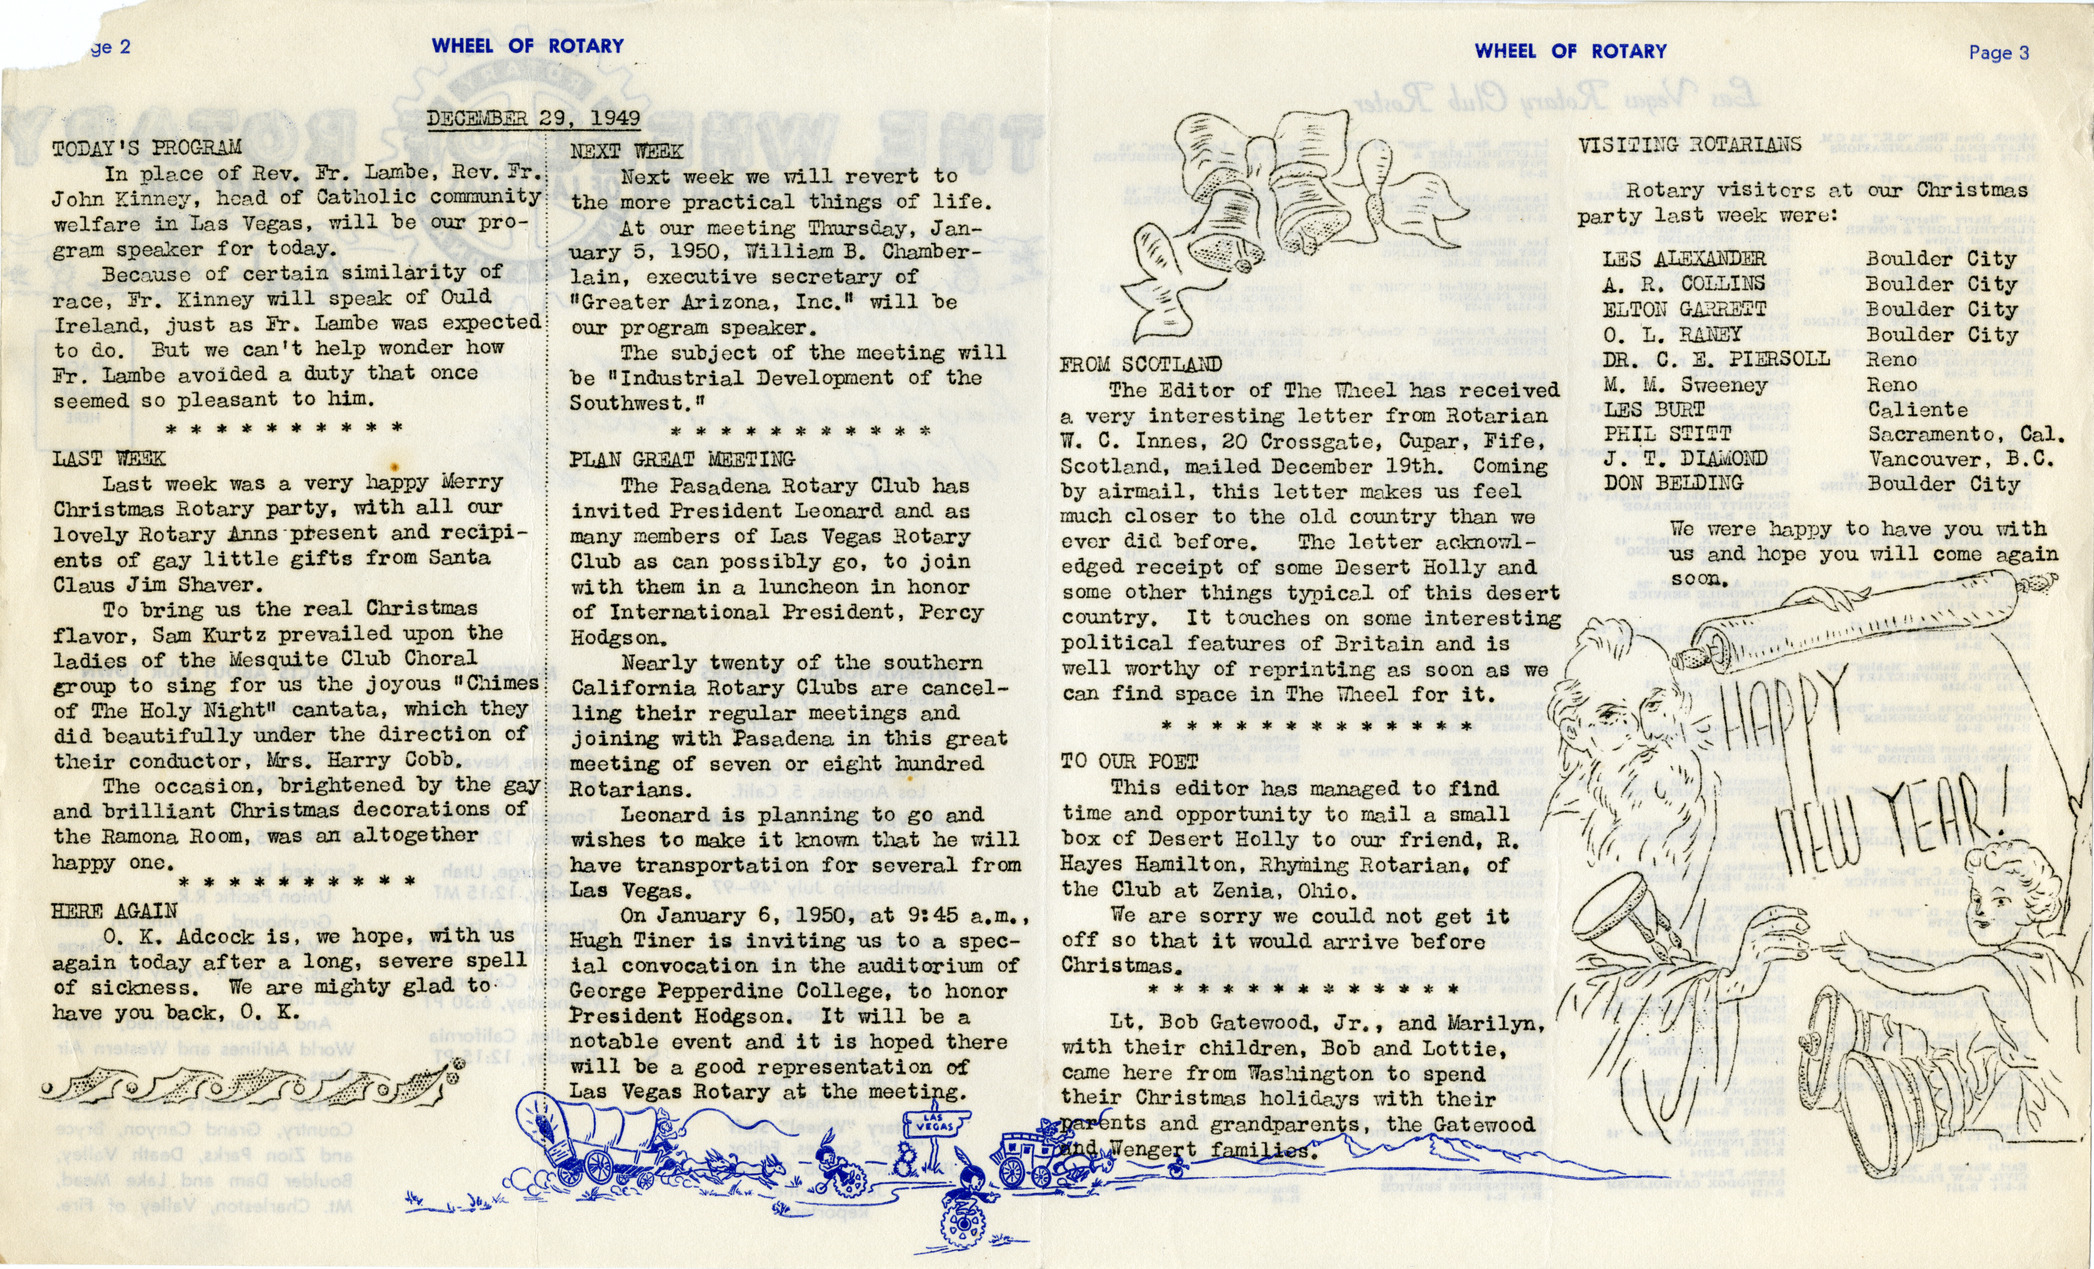 ge 2
WHEEL OF ROTARY
DECEMBER 29, 1949
TODAY'S PROGRAM
In place of Rev. Fr. Lambe, Rev. Fr.
John Kinney, head of Catholic community
welfare in Las Vegas, will be our pro-
gram speaker for today.
Because of certain similarity of
race, Fr. Kinney will speak of Ould
Ireland, just as Fr. Lambe was expected
to do. But we can't help wonder how
Fr. Lambe avoided a duty that once
seemed so pleasant to him.
* * * * * * * * * *
LAST WEEK
Last week was a very happy Merry
Christmas Rotary party, with all our
lovely Rotary Anns present and recipi-
ents of gay little gifts from Santa
Claus Jim Shaver.
To bring us the real Christmas
flavor, Sam Kurtz prevailed upon the
ladies of the Mesquite Club Choral
group to sing for us the joyous "Chimes
of The Holy Night" cantata, which they
did beautifully under the direction of
their conductor, Mrs. Harry Cobb.
The occasion, brightened by the gay
and brilliant Christmas decorations of
the Ramona Room, was an altogether
happy one.
* * * * * * * * * *
HERE AGAIN
O. K. Adcock is, we hope, with us
again today after a long, severe spell
of sickness. We are mighty glad to
have you back, O. K.
NEXT WEEK
Next week we will revert to
the more practical things of life.
At our meeting Thursday, Jan-
uary 5, 1950, William B. Chamber-
lain, executive secretary of
"Greater Arizona, Inc." will be
our program speaker.
The subject of the meeting will
be "Industrial Development of the
Southwest."
* * * * * * * * * * *
PLAN GREAT MEETING
The Pasadena Rotary Club has
invited President Leonard and as
many members of Las Vegas Rotary
Club as can possibly go, to join
with them in a luncheon in honor
of International President, Percy
Hodgson.
Nearly twenty of the southern
California Rotary Clubs are cancel-
ling their regular meetings and
joining with Pasadena in this great
meeting of seven or eight hundred
Rotarians.
Leonard is planning to go and
wishes to make it known that he will
have transportation for several from
Las Vegas.
On January 6, 1950, at 9:45 a.m.,
Hugh Tiner is inviting us to a spec-
ial convocation in the auditorium of
George Pepperdine College, to honor
President Hodgson. It will be a
notable event and it is hoped there
will be a good representation of
Las Vegas Rotary at the meeting.
LAS
VEGAS
WHEEL OF ROTARY
Page 3
FROM SCOTLAND
The Editor of The Wheel has received
a very interesting letter from Rotarian
W. C. Innes, 20 Crossgate, Cupar, Fife,
Scotland, mailed December 19th. Coming
by airmail, this letter makes us feel
much closer to the old country than we
ever did before. The letter acknowl-
edged receipt of some Desert Holly and
some other things typical of this desert
country. It touches on some interesting
political features of Britain and is
well worthy of reprinting as soon as we
can find space in The Wheel for it.
* * * * * * * * * * * * *
TO OUR POET
This editor has managed to find
time and opportunity to mail a small
box of Desert Holly to our friend, R.
Hayes Hamilton, Rhyming Rotarian, of
the Club at Zenia, Ohio.
We are sorry we could not get it
off so that it would arrive before
Christmas.
* * * * * * * * * * * * *
Lt. Bob Gatewood, Jr., and Marilyn,
with their children, Bob and Lottie,
came here from Washington to spend
their Christmas holidays with their
parents and grandparents, the Gatewood
and Wengert families.
VISITING ROTARIANS
Rotary visitors at our Christmas
party last week were:
LES ALEXANDER Boulder City
A. R. COLLINS Boulder City
ELTON GARRETT Boulder City
O. L. RANEY Boulder City
DR. C. E. PIERSOLL Reno
M. M. Sweeney Reno
LES BURT Caliente
PHIL STITT Sacramento, Cal.
J. T. DIAMOND Vancouver, B.C.
DON BELDING Boulder City
We were happy to have you with
us and hope you will come again
soon.
HAPPY
NEW YEAR!